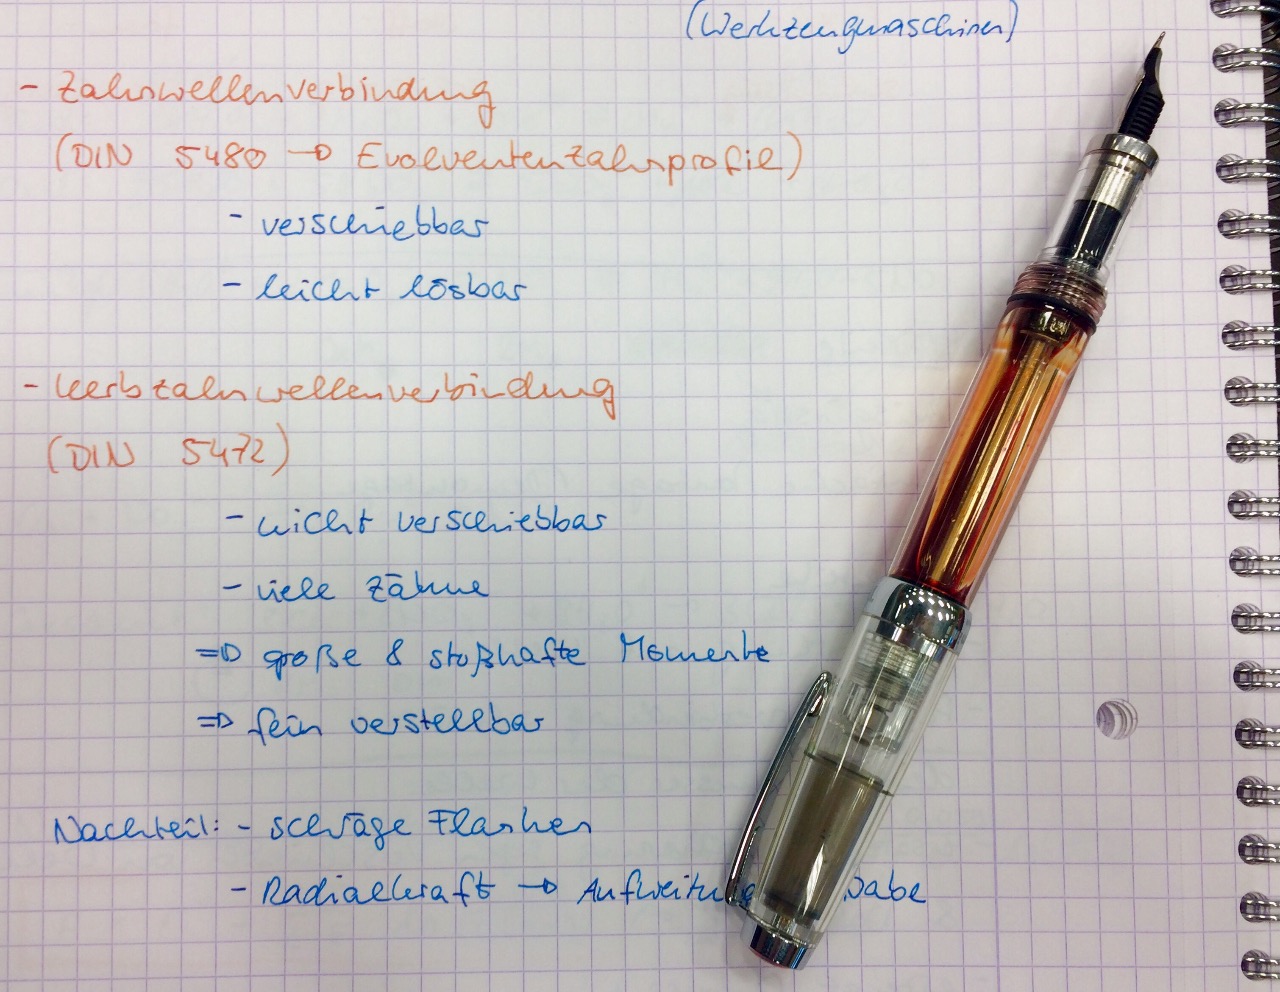 (Werkzeugmaschinen)
- Zahnwellenverbindung
(DIN 5480 → Evolventenzahnprofil)
- verschiebbar
- leicht lösbar
- Kerbzahnwellenverbindung
(DIN 5472)
- nicht verschiebbar
- viele Zähne
⇒ große & stoßhafte Momente
⇒ fein verstellbar
Nachteil: - schräge Flanken
- Radialkraft → Aufweitu abe